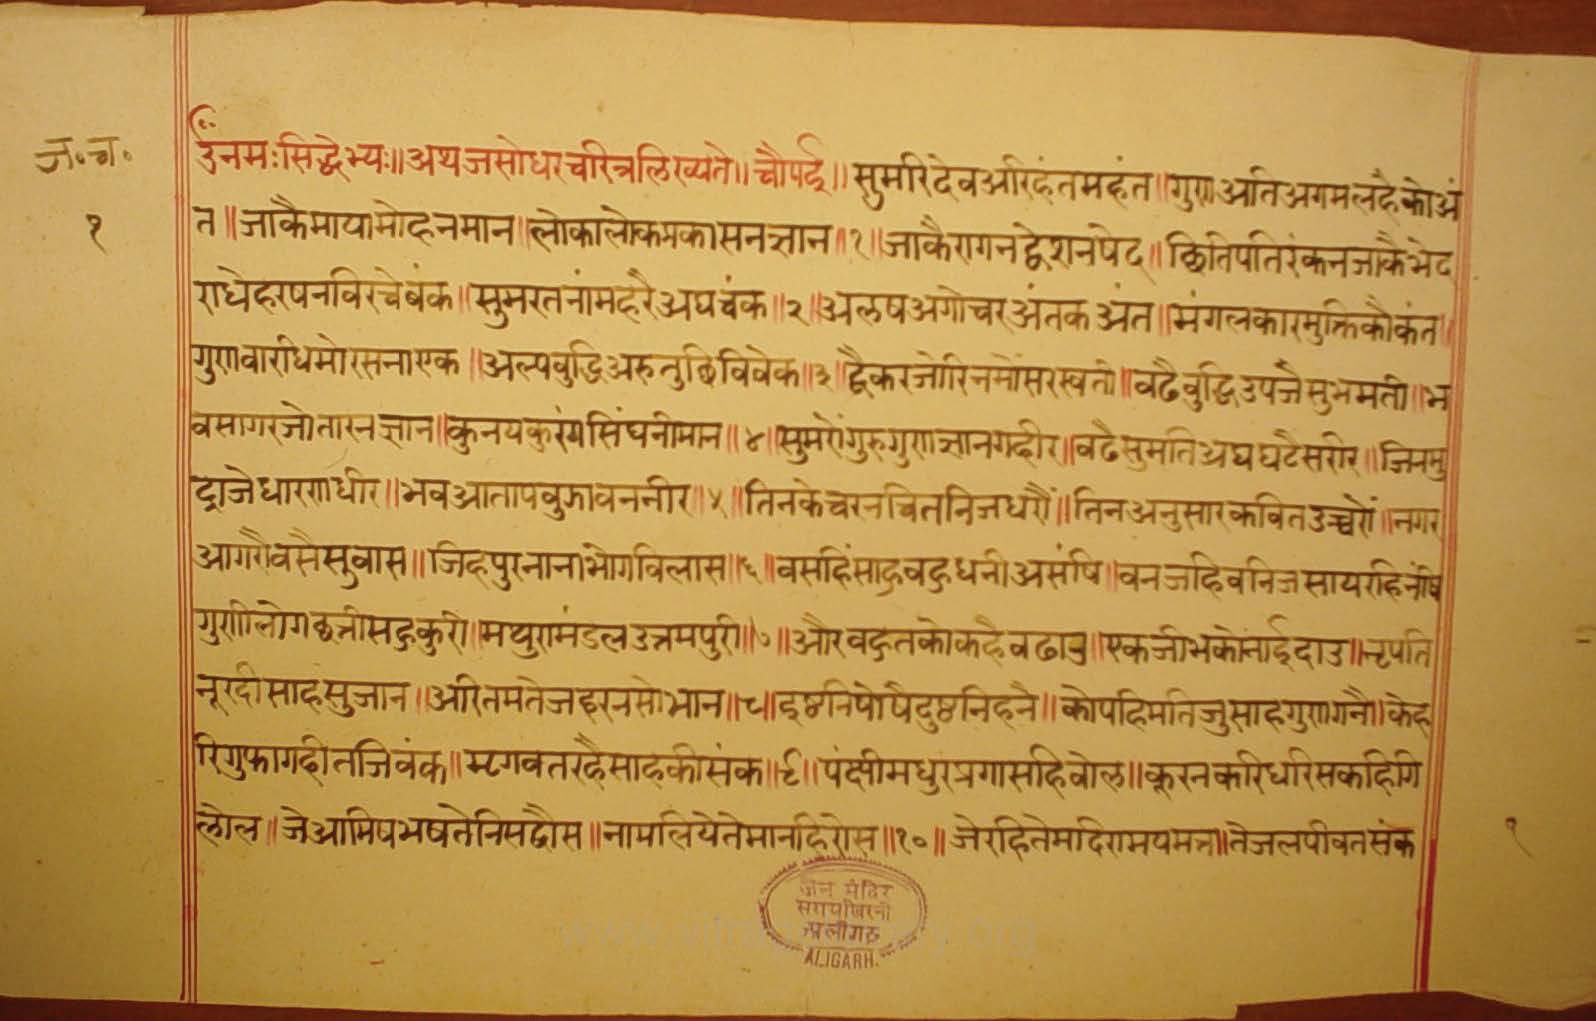 ज॰च॰
१
ॐनमःसिद्धेभ्यः॥अथजसोधरचरित्रलिख्यते॥चौपई॥सुमरिदेवअरिहंतमहंत॥गुणअतिअगमलहैकोअं
त॥जाकैमायामोहनमान॥लोकालोकप्रकासनज्ञान॥१॥जाकैरागनद्वेशनषेद॥छितिपतिरंकनजाकैभेद
राधेहरषनविरचेबंक॥सुमरतनांमहरैअघचंक॥२॥अलषअगोचरअंतकअंत॥मंगलकारमुक्तिकौकंत॥
गुणवारिधिमोरसनाएक॥अल्पबुद्धिअरुतुछिविवेक॥३॥द्वैकरजोरिनमौंसरस्वती॥वढैबुद्धिउपजैसुभमती॥भ
वसागरजोतारनज्ञान॥कुनयकुरंगसिंघनीमान॥४॥सुमरोंगुरुगुणज्ञानगहीर॥वढैसुमतिअघघटैसरीर॥जिनमु
द्राजेधारणधीर॥भवआतापवुझावननीर॥५॥तिनकेचरनचितनिजधरौं॥तिनअनुसारकवितउच्चरों॥नगर
आगरौवसैसुवास॥जिहपुरनानाभोगविलास॥६॥वसहिंसाहुवहुधनीअसंषि॥वनजहिवनिजसायरहिनंषि
गुणीलोगछत्रीसहुकुरी॥मथुरामंडलउत्तमपुरी॥७॥औरवहुतकोकहैवढाउ॥एकजीभकोनांईदाउ॥नृपति
नूरदीसाहसुजान॥अरितमतेजहरनसोभान॥८॥इष्टनिपोषैदुष्टनिहनै॥कोपहिमतिजुसाहगुणगनै॥केह
रिगुफागहीतजिवंक॥मृगवतरहैसाहकीसंक॥९॥पंक्षीमधुरप्रगासहिवोल॥कूरनकरिधरिसकहिगि
लोल॥जेआमिषभषतेनिसद्यौस॥नामलियेतेमानहिरोस॥१०॥जेरहितेमदिरामयमत्त॥तेजलपीवतसंक
१
जैन मंदिर
अलीगढ़
ALIGARH.